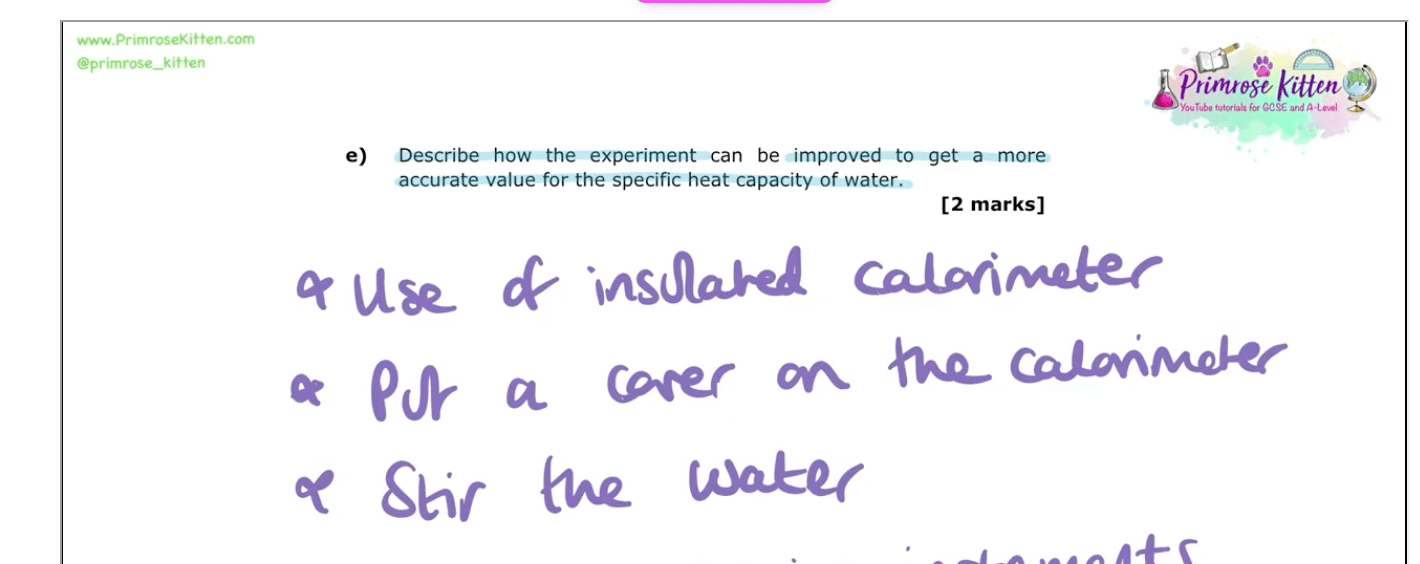 www.PrimroseKitten.com
@primrose_kitten
Primrose Kitten
YouTube tutorials for GCSE and A-Level
e) Describe how the experiment can be improved to get a more
accurate value for the specific heat capacity of water.
[2 marks]
* Use of insulated calorimeter
* Put a cover on the calorimeter
* Stir the water